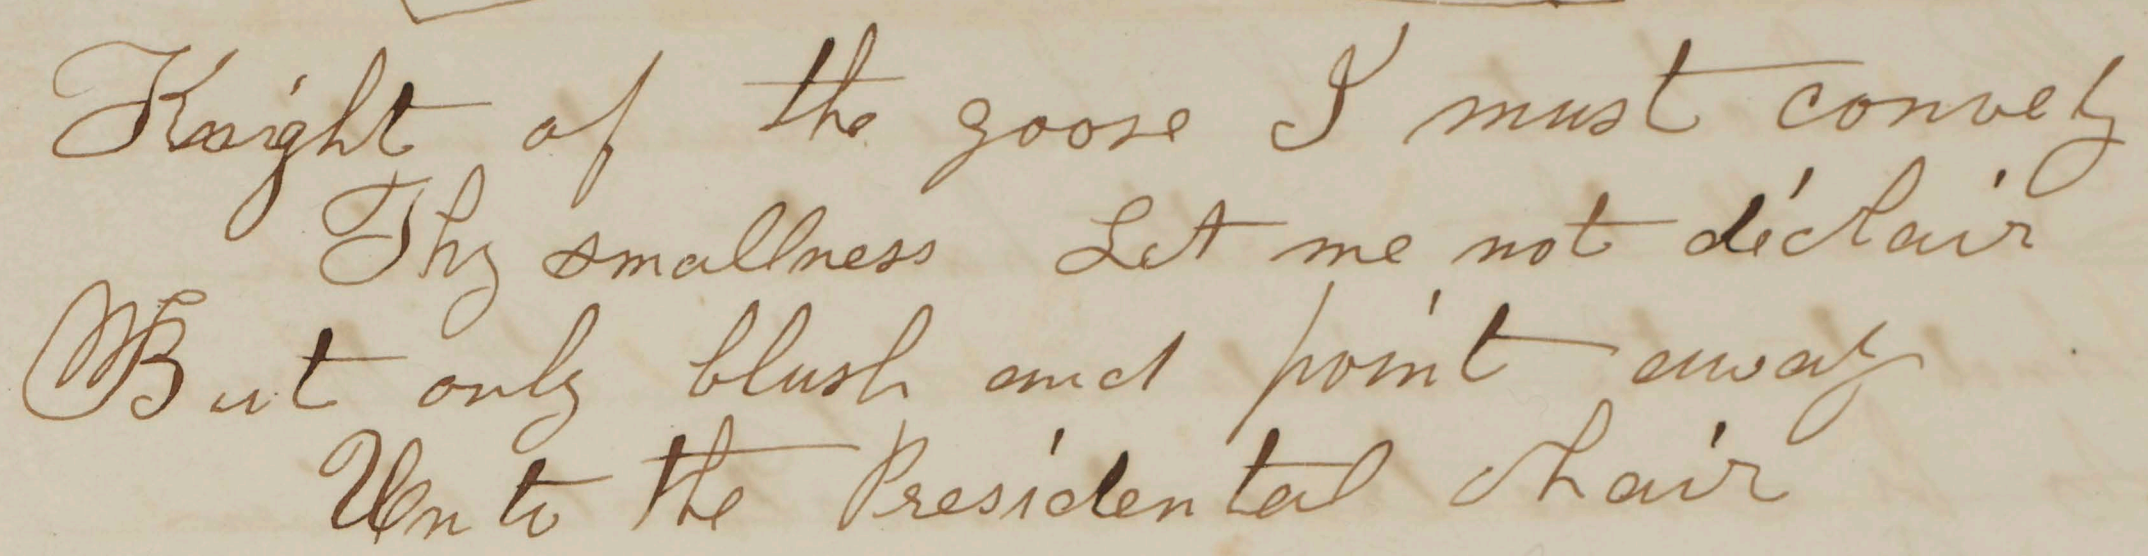 Knight of the goose I must convey
Thy smallness Let me not declair
But only blush and point away
Unto the Presidental chair